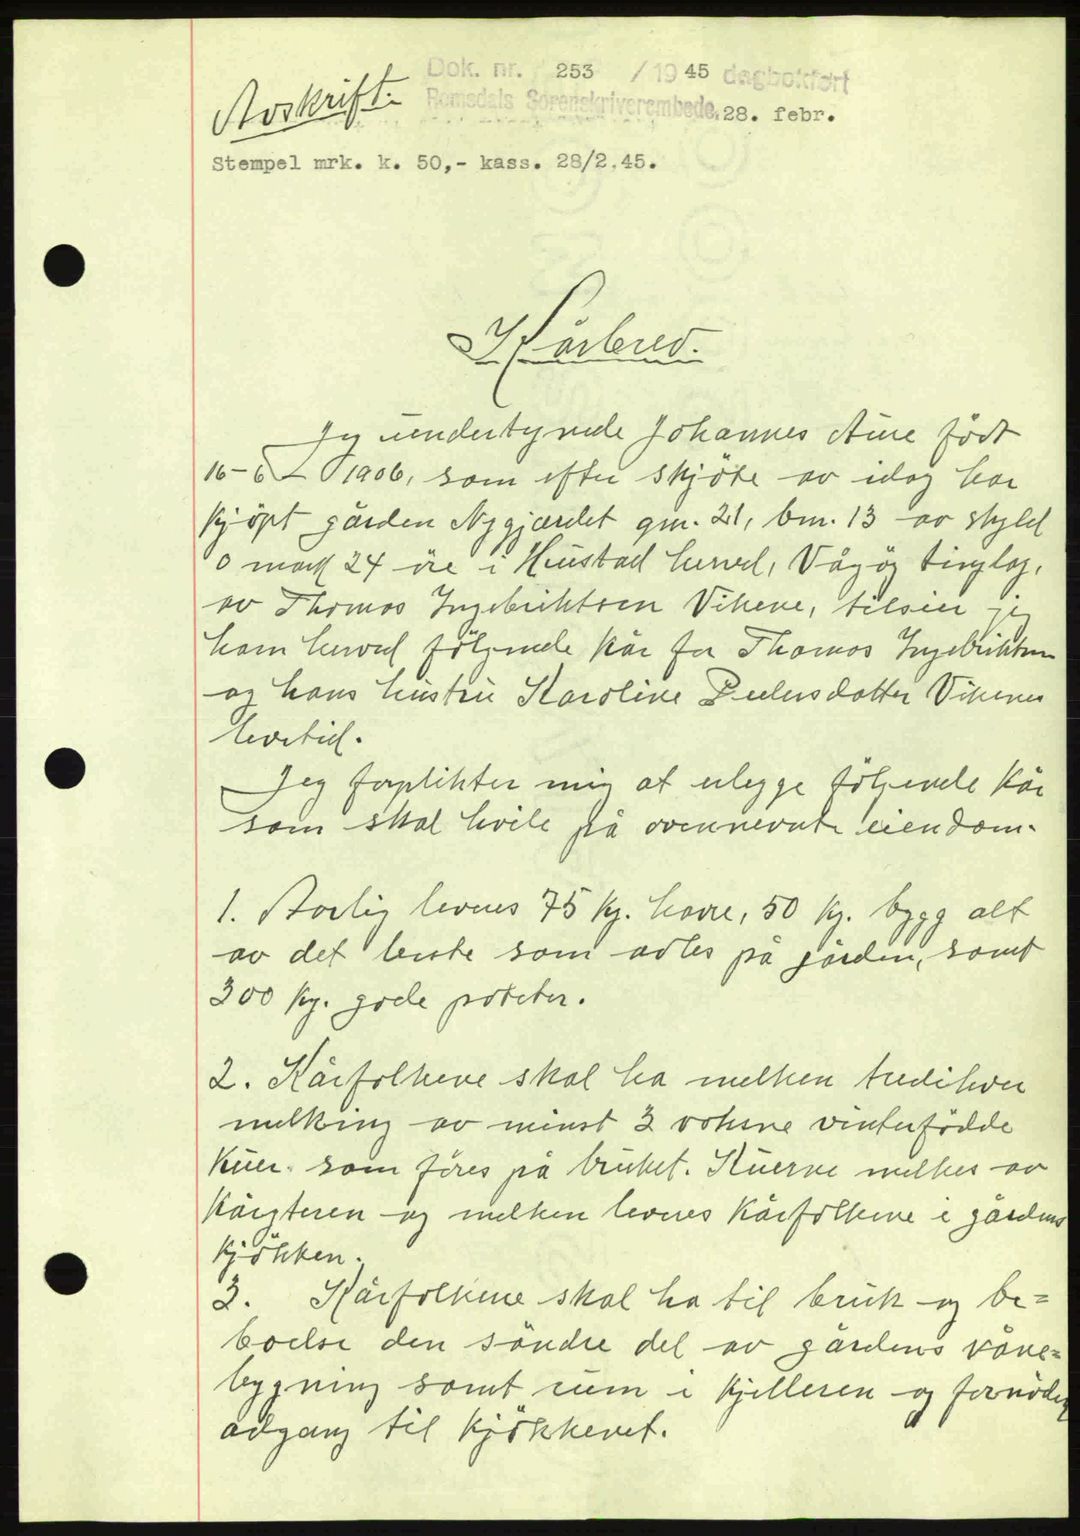 Dok. nr. 253 / 1945 dagbokført
Avskrift. Romsdals Sorenskriverembede, 28. febr.
Stempel mrk. k. 50,- kass. 28/2.45.
Kårbrev.
Jeg undertegnede Johannes Aue født
16-6- 1906, som efter skjöte av idag har
kjöpt gården Nygjærdet gnr. 21, bnr. 13 av skyld
0 mark 24 öre i Hustad herred, Vågöy tinglag,
av Thomas Ingebriktsen Vikene, tilsier jeg
ham herved fölgende kår for Thomas Ingebriktsen
og hans hustru Karoline Pedersdatter Vikenes
levetid.
Jeg forplikter mig at utlegge fölgende kår
som skal hvile på ovennevnte eiendom.
1. Aarlig leveres 75 kg. havre, 50 kg. bygg alt
av det beste som avles på gården, samt
300 kg. gode poteter.
2. Kårfolkene skal ha melken tredihver
melking av minst 3 voksne vinterfödde
kuer som föres på bruket. Kuerne melkes av
kårgteren og melken leveres kårfolkene i gårdens
kjökken.
3. Kårfolkene skal ha til bruk og be=
boelse den söndre del av gårdens våne=
bygning samt rum i kjelleren og fornöden
adgang til kjökkenet.